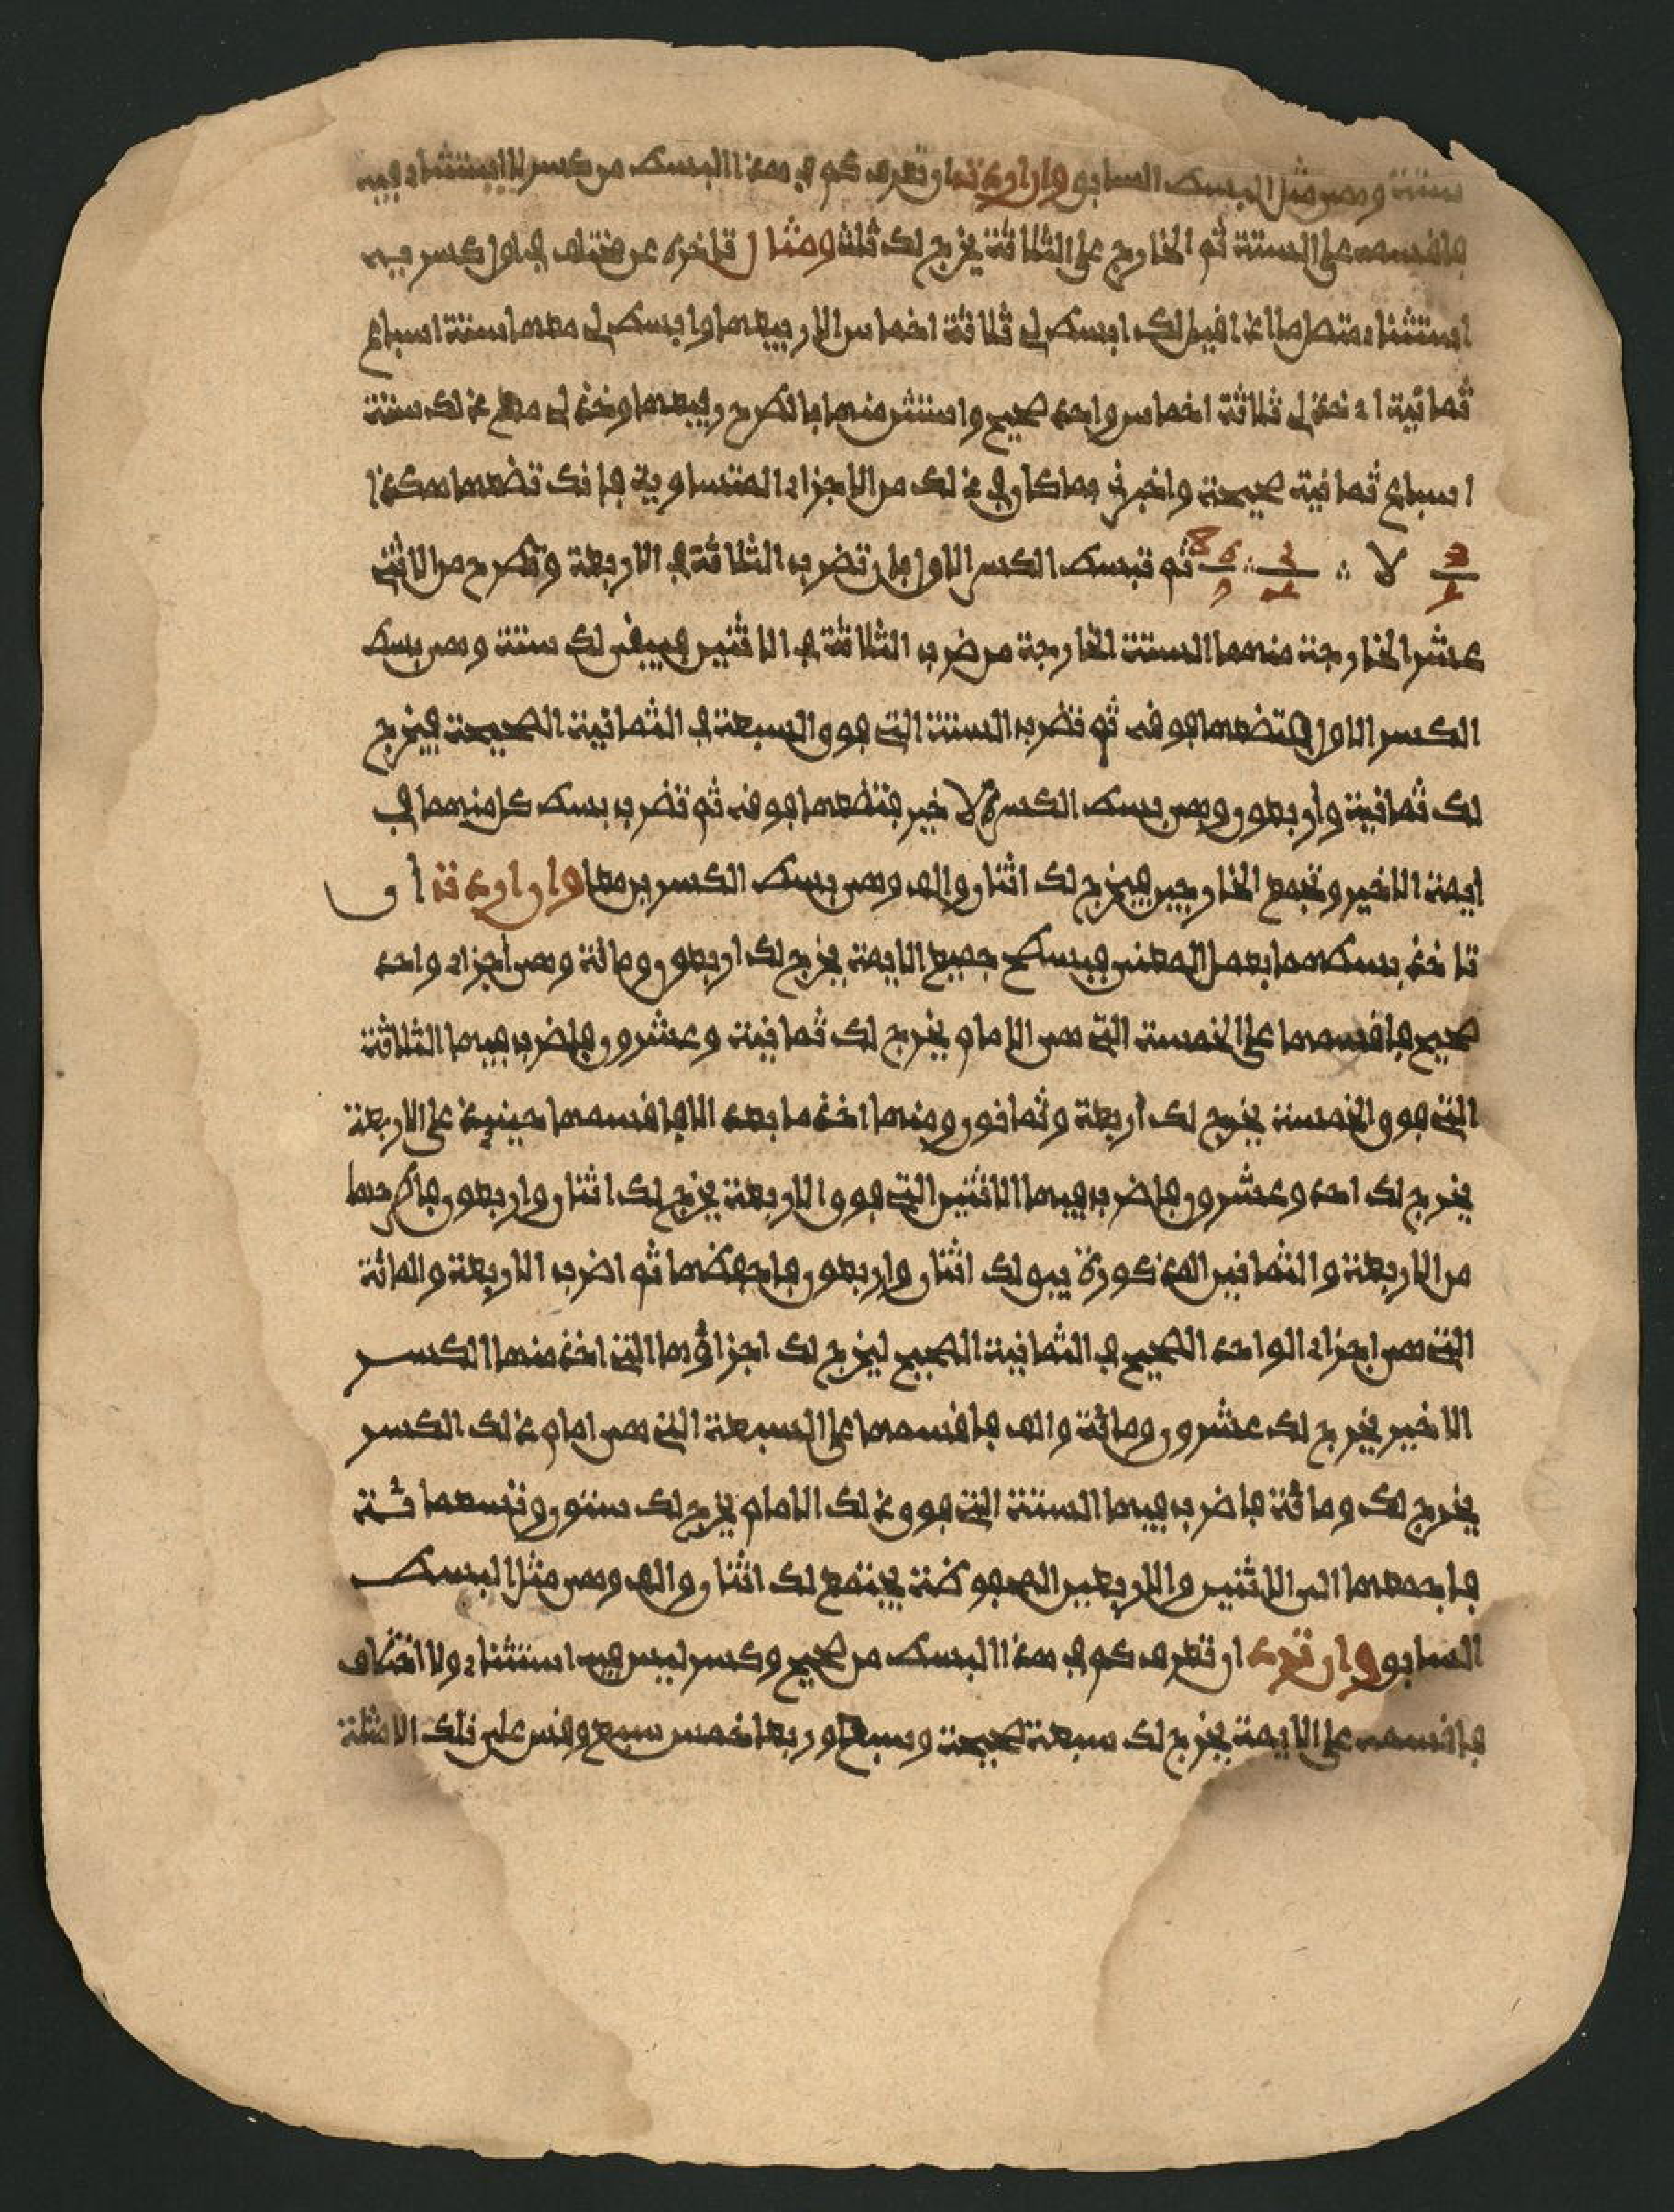 ستة وهي مثل البسط السابق وان اردت ان تعرف كم في هذا البسط من كسر لا استثناء فيه
فاقسمه على الستة ثم الخارج على الثلاثة يخرج لك ثلث ومثال تأخره عن مختلف في اول كسر فيه
استثناء متصل ما اذا قيل لك ابسط لي ثلاثة اخماس الا ربيعها وابسط لي معها ستة اسباع
ثمانية ا خذ لي ثلاثة اخماس واحد صحيح واستثن منها بالطرح ربعها وخذ لي مع ذلك ستة
اسباع ثمانية صحيحة واخبرني بما كان في ذلك من الاجزاء المتساوية فانك تضعها هكذا
ثم تبسط الكسر الاول بان تضرب الثلاثة في الاربعة وتطرح من الاثني
عشر الخارجة منهما الستة الخارجة من ضرب الثلاثة في الاثنين فيبقى لك ستة وهي بسط
الكسر الاول فتضعها فوقه ثم تضرب الستة التي فوق السبعة في الثمانية الصحيحة فيخرج
لك ثمانية واربعون وهي بسط الكسر الاخير فتضعها فوقه ثم تضرب بسط كل منهما في
ايمة الاخير وتجمع الخارجين فيخرج لك اثنان والف وهي بسط الكسرين معا وان اردت ان
تاخذ بسطهما بعمل المعنى فبسطح جميع الايمة يخرج لك اربعون ومائة وهي اجزاء واحد
صحيح فاقسمها على الخمسة التي هي الامام يخرج لك ثمانية وعشرون فاضرب فيها الثلاثة
التي فوق الخمسة يخرج لك اربعة وثمانون ومنها اخذ ما بعد الا فاقسمها حينيذ على الاربعة
يخرج لك احد وعشرون فاضرب فيها الاثنين التي فوق الاربعة يخرج لك اثنان واربعون فاطرحها
من الاربعة والثمانين المذكورة يبق لك اثنان واربعون فاحفظها ثم اضرب الاربعة والمائة
التي هي اجزاء الواحد الصحيح في الثمانية الصحيح ليخرج لك اجزاؤها التي اخذ منها الكسر
الاخير يخرج لك عشرون ومائة والف فاقسمها على السبعة التي هي امام ذلك الكسر
يخرج لك ومائة فاضرب فيها الستة التي فوق ذلك الامام يخرج لك ستون وتسعمائة
فاجمعها الى الاثنين والاربعين المحفوظة يجتمع لك اثنان والف وهي مثل البسط
السابق وان ترد ان تعرف كم في هذا البسط من صحيح وكسر ليس فيه استثناء ولا اختلاف
فاقسمه على الايمة يخرج لك سبعة صحيحة وسبع وربعا خمس سبع وقس على تلك الامثلة